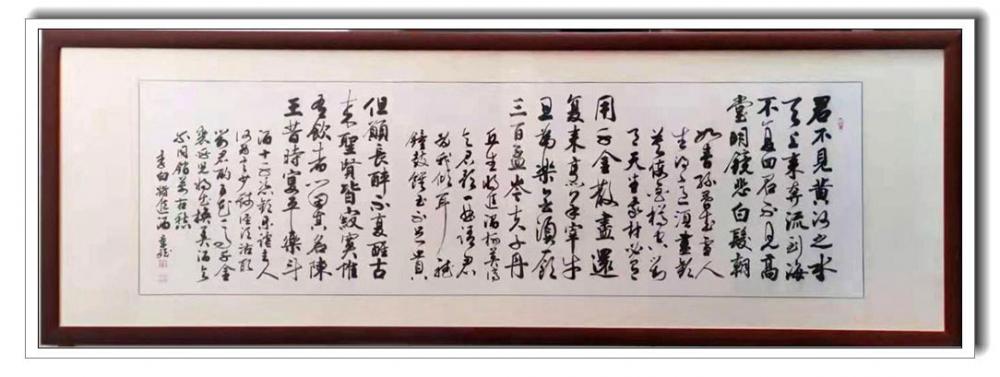 君不見黃河之水
天上來奔流到海
不復回君不見高
堂明鏡悲白髮朝
如青絲暮成雪人
生得意須盡歡
莫使金樽空對
月天生我材必有
用千金散盡還
復來烹羊宰牛
且為樂會須飲
三百盃岑夫子丹
丘生將進酒杯莫停
與君歌一曲請君
為我傾耳聽
鐘鼓饌玉不足貴
但願長醉不復醒古
來聖賢皆寂寞惟
有飲者留其名陳
王昔時宴平樂斗
酒十千恣歡謔主人
何為言少錢徑須沽取
對君酌五花馬千金
裘呼兒將出換美酒與
尔同銷萬古愁
李白將進酒